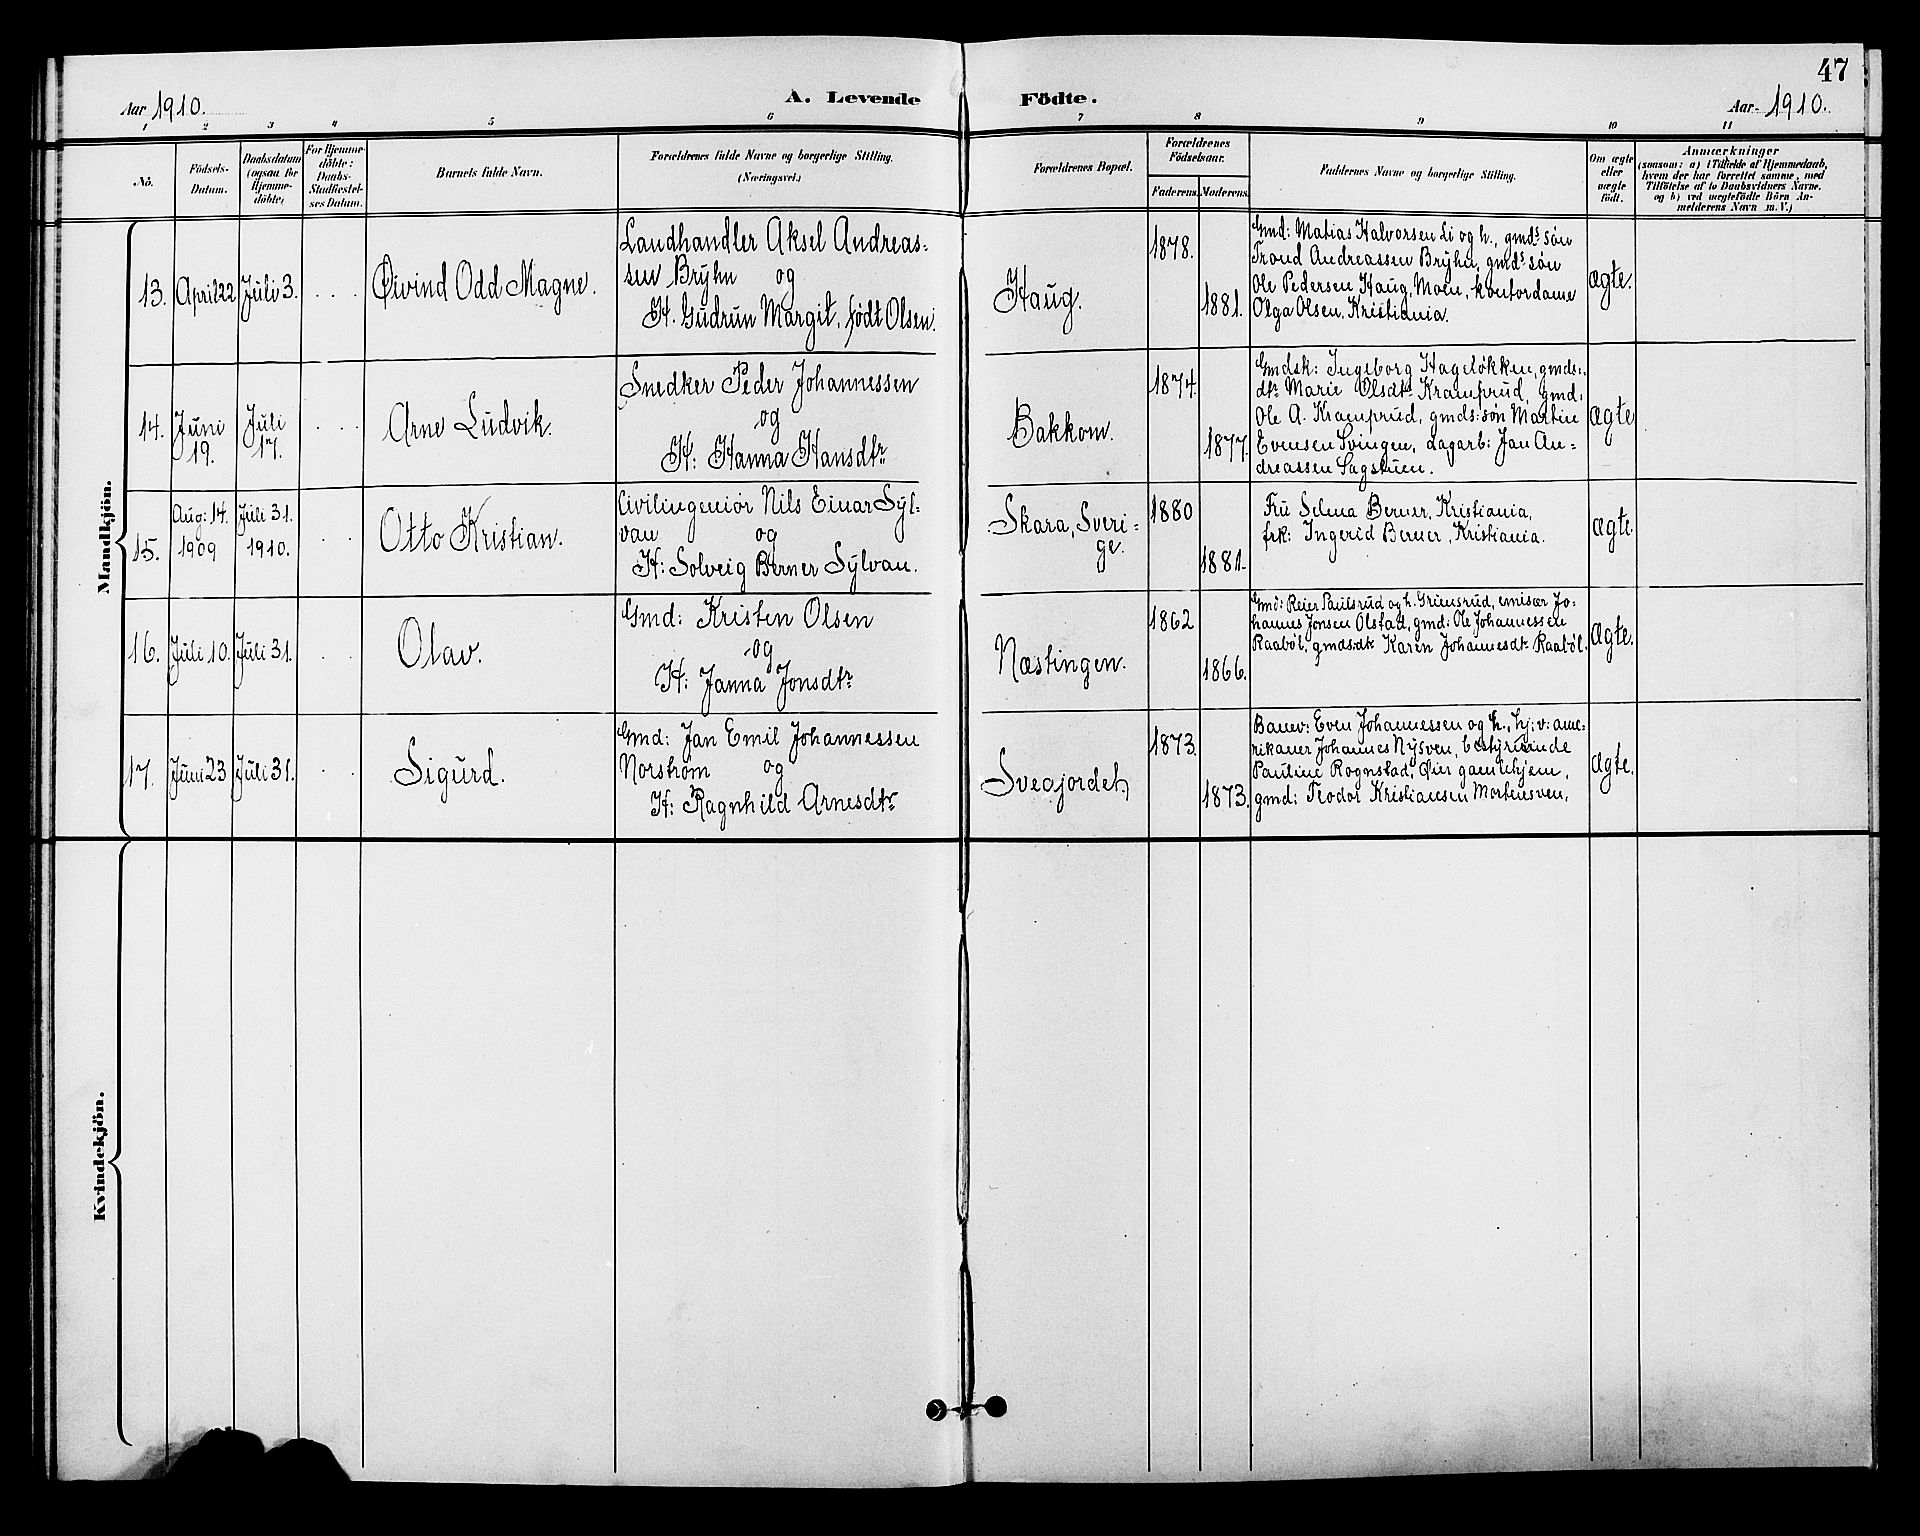 47
Aar 1910.
A. Levende Födte.
Aar 1910.
1 2 3 4 5 6 7 8 9 10 11
No.
Födsels-
Datum.
Daabsdatum
(ogsaa for
Hjemme-
döbte)
For Hjemme-
döbte:
Daabs-
Stadfæstel-
ses Datum.
Barnets fulde Navn.
Forældrenes fulde Navne og borgerlige Stilling.
(Næringsvei.)
Forældrenes Bopæl.
Forældrenes
Födselsaar.
Faderens. Moderens.
Faddernes Navne og borgerlige Stilling.
Om ægte
eller
uægte
födt.
Anmærkninger
(saasom: a) i Tilfælde af Hjemmedaab,
hvem der har forrettet samme, med
Tilföielse af to Daabsvidners Navne.
og b) ved uægtefödte Börn An-
melderens Navn m. V.)
Mandkjön.
13. April 22 Juli 3. Øivind Odd Magne.
Landhandler Aksel Andreas-
sen Bryhn og
H. Gudrun Margit, født Olsen.
Haug.
1878.
1881.
Gmd: Matias Halvorsen Li og h., gmds søn
Trond Andreassen Bryhn, gmds søn
Ole Pedersen Haug, Moen, kontordame
Olga Olsen, Kristiania.
ægte.
14. Juni
19.
Juli
17.
Arne Ludvik.
Snedker Peder Johannessen
og
H: Hanna Hansdtr
Bakkom.
1874.
1877.
Gmdsk: Ingeborg Hageløkken, gmds:
dtr Marie Olsdtr Kramprud, gmd:
Ole A. Kramprud, gmds: søn Martin
Evensen Svingen, dagarb: Jan An-
dreassen Sagstuen.
ægte
15.
Aug: 14.
1909
Juli 31.
1910.
Otto Kristian.
Civilingeniør Nils Einar Syl-
van og
H: Solveig Berner Sylvan.
Skara, Sveri-
ge.
1880
1881.
Fru Selma Berner, Kristiania,
frk: Ingerid Berner, Kristiania.
ægte.
16. Juli 10. Juli 31. Olav.
Gmd: Kristen Olsen
og
H: Janna Jonsdtr
Næstingen.
1862
1866.
Gmd: Reier Paulsrud og h. Griensrud, emisær Jo-
hannes Jonsen Olstad, gmd: Ole Johannessen
Raabøl, gmds:dtr Karen Johannesdtr Raabøl.
ægte.
17. Juni 23 Juli 31. Sigurd.
Gmd: Jan Emil Johannessen
Norstrøm og
H: Ragnhild Arnesdtr
Sveajordet
1873.
1873.
Banev: Even Johannessen og h., hj: v: ame-
rikaner Johannes Nysven, bestyrerinde
Pauline Rognstad, Øier gamlehjem,
gmd: Teodor Kristiansen Mortensven.
ægte.
Kvindekjön.